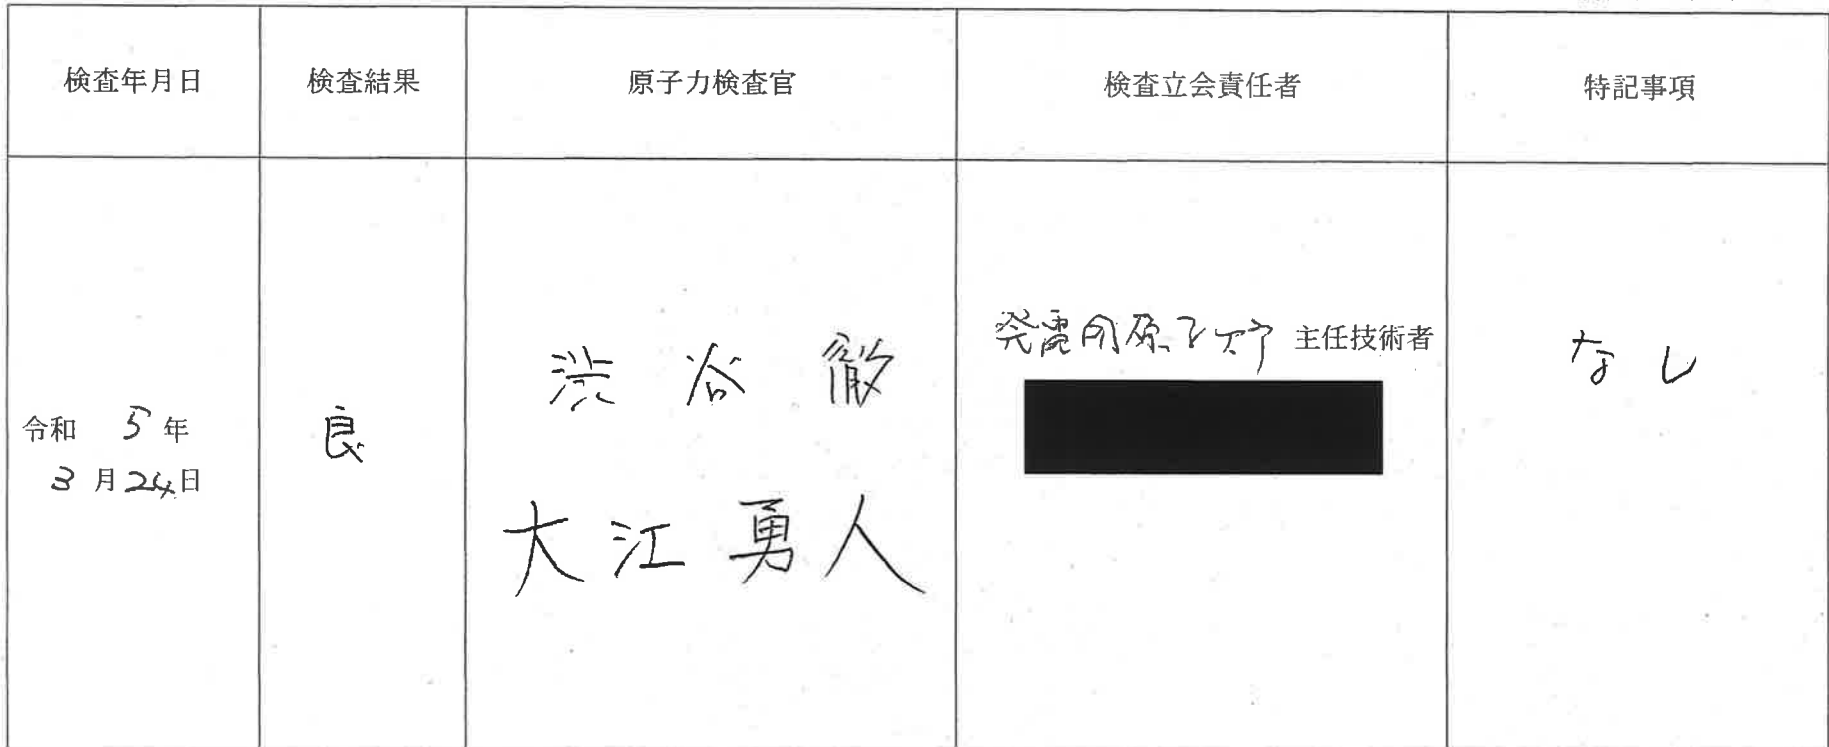 検査年月日 検査結果 原子力検査官 検査立会責任者 特記事項
令和 5年
3月24日
良
渋谷 徹
大江勇人
発電用原子炉 主任技術者
なし